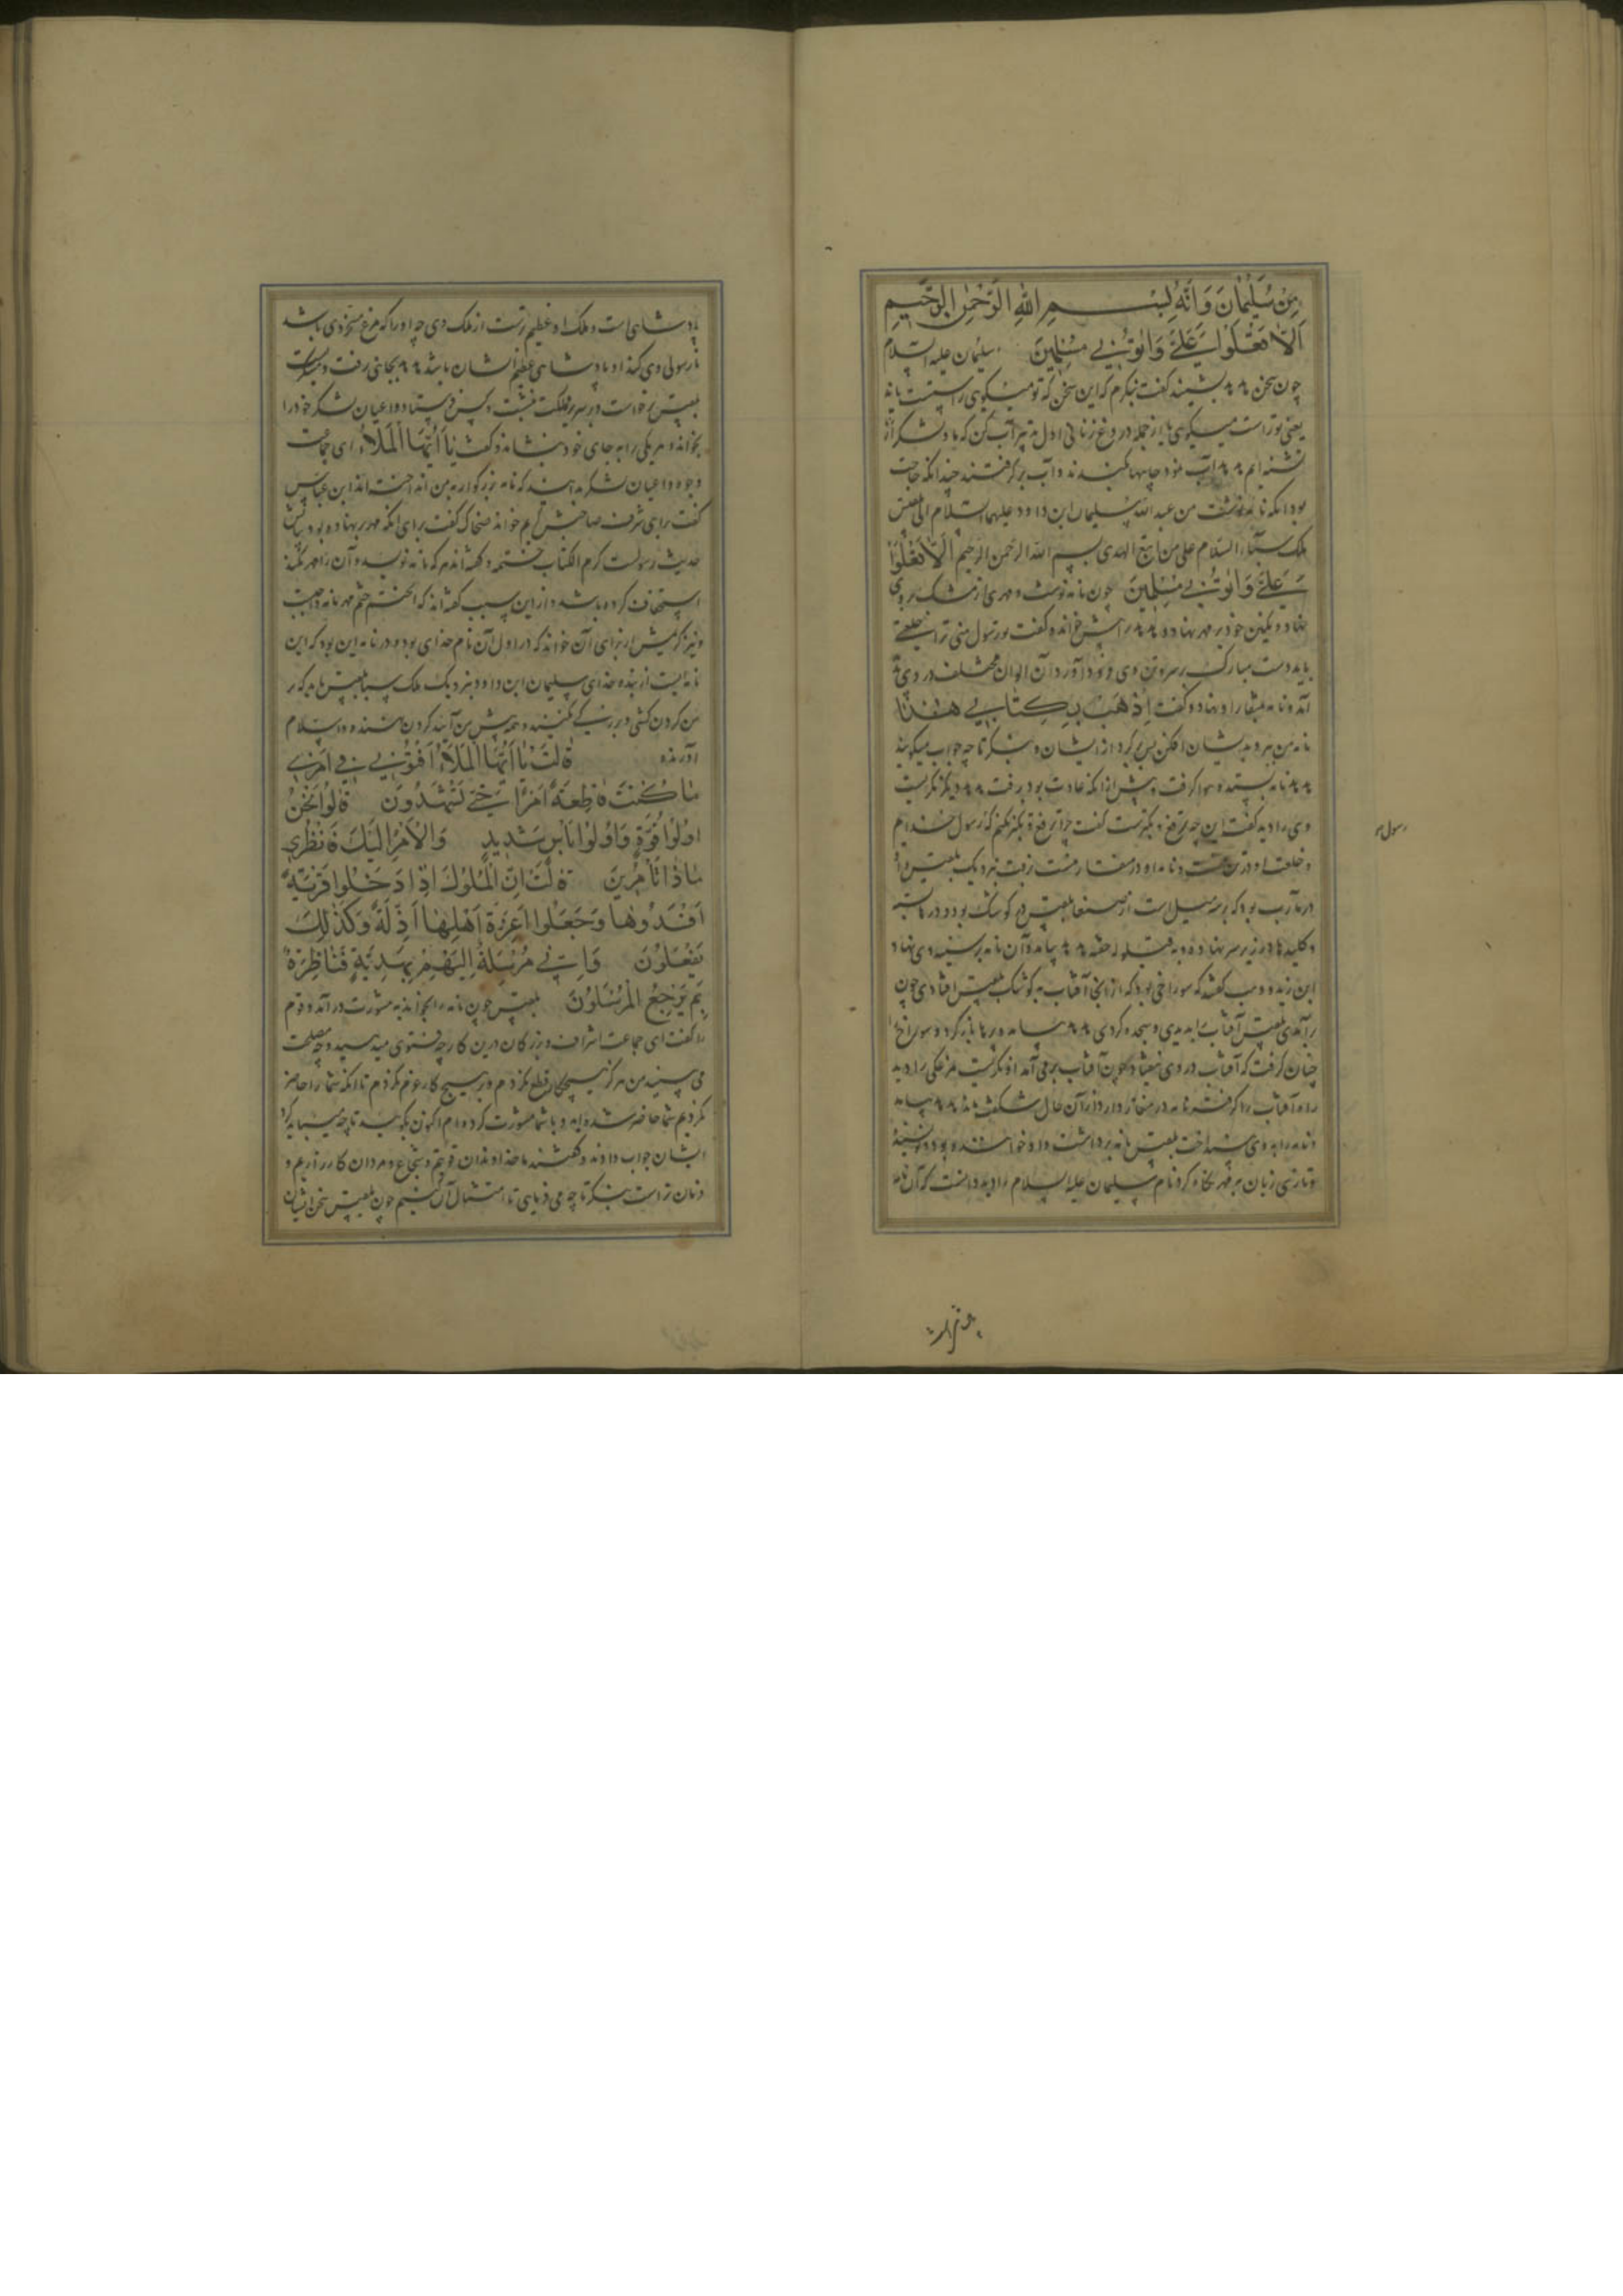 مِنْ سُلَيْمَانَ وَاِنَّهُ بِسْمِ اللهِ الرَّحْمٰنِ الرَّحِيمِ
اَلَّا تَعْلُوا عَلَيَّ وَأْتُونِي مُسْلِمِينَ سلیمان علیه السلام
چون سخن هدهد بشنید گفت بنکرم که این سخن که تو میکوی راستست یا نه
یعنی تو راست میکوی یا از جمله دروغ زنانی اول تدبیر آب کن که ما و لشکر ما
تشنه ایم هدهد آب نمود چاهها کندند و آب بر کرفتند چندانکه حاجت
بود آنکه نامه نوشت من عبد الله سلیمان ابن داود علیهما السلام الی بلقیس
ملکه سبا السلام علی من اتبع الهدی بسم الله الرحمن الرحیم اَلَّا تَعْلُوا
عَلَيَّ وَأْتُونِي مُسْلِمِينَ چون نامه نوشت و مهری از مشک بر وی
نهاد و نکین خود بر مهر نهاد و هدهد را پیش خواند و کفت تو رسول منی ترا خلعتی
باید دست مبارک بر سر و تن وی فرود آورد آن الوان مختلف در وی
آمد و نامه بمنقار او نهاد و کفت اِذْهَبْ بِكِتَابِي هٰذَا
نامه من ببر و بدیشان افکن پس برکرد از ایشان و بنکر تا چه جواب میکویند
هدهد نامه بستد و هوا کرفت و پیش از آنکه عادت بود برفت هدهد دیکر نکریست
وی را دید کفت این چه ترفع و تکبرست کفت چرا ترفع و تکبر نکنم که رسول خدایم
و خلعت او در تن منست و نامه او در منقار منست برفت نزدیک بلقیس و او
در مآرب بود که بر سه میل است از صنعا بلقیس در کوشک بود و درها بسته
و کلیدها در زیر سر نهاده و به قیلوله خفته هدهد بیامد و آن نامه بر سینه وی نهاد
ابن زید و وهب کفتند که سوراخی بود که از آنجا آفتاب به کوشک بلقیس افتادی چون
برآمدی بلقیس آفتاب را بدیدی و سجده کردی هدهد بیامد و پرها باز کرد و سوراخ
چنان کرفت که آفتاب در وی نیفتاد چون آفتاب بر می آمد او نکریست مرغکی را دید
راه آفتاب را کرفته نامه در منقار دارد از آن حال شکفت ماند هدهد بیامد
و نامه را به وی انداخت بلقیس نامه برداشت و او خواننده بود و نویسنده
و تازی زبان بر مهر نکاه کرد نام سلیمان علیه السلام را دید دانست که آن نامه
رسول
پادشاهی است و ملک او عظیم ترست از ملک وی چه او را که مرغ مسخر وی باشد
تا رسولی وی کند او پادشاهی عظیم الشان باشد هدهد بجانبی رفت و
بلقیس برخاست و بر سریر مملکت نشست و کس فرستاد و اعیان لشکر خود را
بخواند و هر یکی را به جای خود بنشاند و کفت يَا اَيُّهَا الْمَلَأُ ای جماعت
وجوه و اعیان لشکر بدانند که نامه بزرکوار به من انداخته اند ابن عباس
کفت برای شرف صاحبش کریم خواند ضحاک کفت برای آنکه مهر بر نهاده بود
حدیث رسولست کرم الکتاب ختمه و کفته اند هر که نامه نویسد و آن را مهر نکند
استخفاف کرده باشد و از این سبب کفته اند که الختم حتم مهر نامه واجبست
و نیز کریمش از برای آن خواند که در اول آن نام خدای بود و در نامه این بود که این
نامه ایست از بنده خدای سلیمان ابن داود نزدیک ملکه سبا بلقیس باید که بر
من کردن کشی و بزرکی نکنید و همه پیش من آیید کردن نهنده و اسلام
آورنده قَالَتْ يَا اَيُّهَا الْمَلَأُ اَفْتُونِي فِي اَمْرِي
مَا كُنْتُ قَاطِعَةً اَمْرًا حَتّٰى تَشْهَدُونَ قَالُوا نَحْنُ
اُولُوا قُوَّةٍ وَاُولُوا بَأْسٍ شَدِيدٍ وَالْاَمْرُ اِلَيْكِ فَانْظُرِي
مَاذَا تَأْمُرِينَ قَالَتْ اِنَّ الْمُلُوكَ اِذَا دَخَلُوا قَرْيَةً
اَفْسَدُوهَا وَجَعَلُوا اَعِزَّةَ اَهْلِهَا اَذِلَّةً وَكَذٰلِكَ
يَفْعَلُونَ وَاِنِّي مُرْسِلَةٌ اِلَيْهِمْ بِهَدِيَّةٍ فَنَاظِرَةٌ
بِمَ يَرْجِعُ الْمُرْسَلُونَ بلقیس چون نامه را بخواند به مشورت در آمد و قوم
را کفت ای جماعت اشراف و بزرکان درین کار چه فتوی میدهید و چه مصلحت
می بینید من هرکز هیچ کار قطع نکردم و بر هیچ کار عزم نکردم تا آنکه شما را حاضر
نکردم شما حاضر شده اید و با شما مشورت کرده ام اکنون بکویید تا چه میباید کرد
ایشان جواب دادند و کفتند ما خداوندان قوتیم و شجاع و مردان کارزاریم و
فرمان تراست بنکر تا چه می فرمایی تا امتثال آن کنیم چون بلقیس سخن ایشان